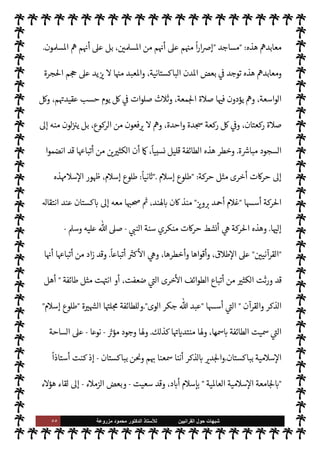 معابدهم هذه: "مساجد "إصراراً منهم على أنهم من المسلمين، بل على أنهم هم المسلمون.
ومعابدهم هذه توجد في بعض المدن الباكستانية، والمعبد منها لا يزيد على حجم الحجرة
الواسعة، وهم يؤدون فيها صلاة الجمعة، وثلاث صلوات في كل يوم حسب عقيدتهم، وكل
صلاة ركعتان، وفي كل ركعة سجدة واحدة، وهم لا يرفعون من الركوع، بل ينزلون منه إلى
السجود مباشرة. وخطر هذه الطائفة قليل نسبياً، كما أن الكثيرين من أتباعها قد انضموا
إلى حركات أخرى مثل حركة: "طلوع إسلام .”ثانياً: طلوع إسلام، ظهور الإسلامهذه
الحركة أسسها "غلام أحمد برويز" منذ كان بالهند، ثم صحبها معه إلى باكستان عند انتقاله
إليها. وهذه الحركة هي أنشط حركات منكري سنة النبي - صلى الله عليه وسلم -
"القرآنيين" على الإطلاق، وأقواها وأخطرها، وهي الأكثر أتباعاً. وقد زاد من أتباعها أنها
قد ورثت الكثير من أتباع الطوائف الأخرى التي ضعفت، أو انتهت مثل طائفة " أهل
الذكر والقرآن " التي أسسها "عبد الله جكر الوى".وللطائفة مجلتها الشهيرة "طلوع إسلام"
التي سميت الطائفة باسمها، ولها منتدياتها كذلك. ولها وجود مؤثر - نوعا - على الساحة
الإسلامية بباكستان.والجدير بالذكر أننا سمعنا بهم ونحن بباكستان - إذ كنت أستاذاً
"بالجامعة الإسلامية العالمية " بإسلام أباد، وقد سعيت - وبعض الزملاء - إلى لقاء هؤلاء
شبهات حول القرآنيين للأستاذ الدكتور محمود مزروعة ٥٥